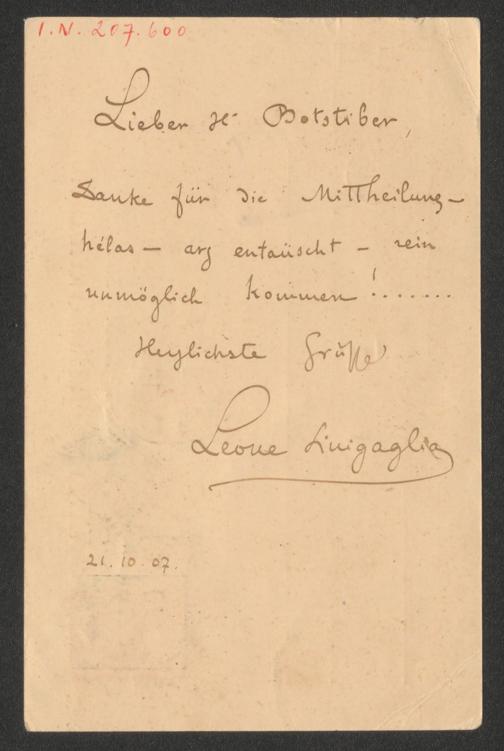 I.N. 207.600
Lieber H. Botstiber,
Danke für die Mittheilung –
hélas – arg entaüscht – rein
unmöglich kommen !.......
Herzlichste Grüße
Leone Sinigaglia
21.10.07.